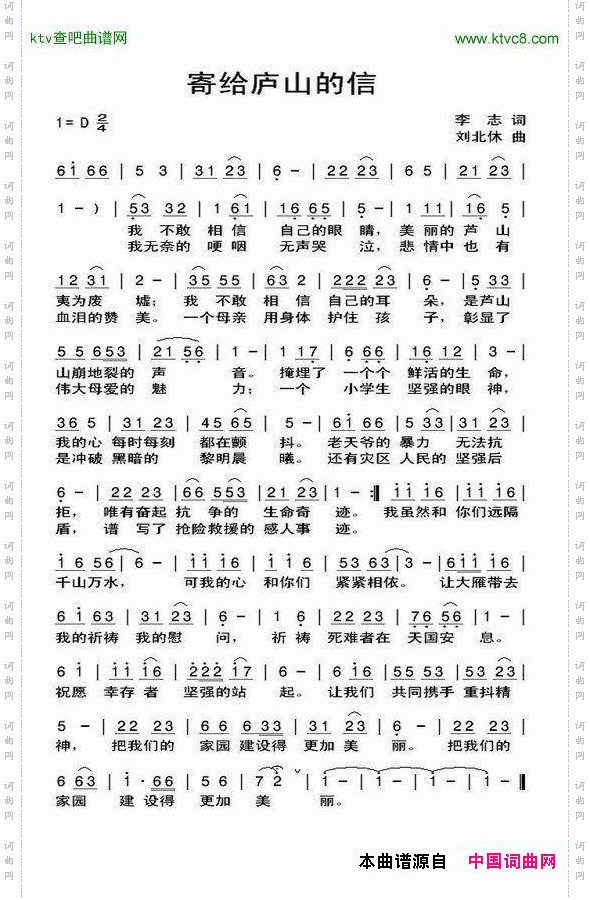 ktv查吧曲谱网 www.ktvc8.com
寄给庐山的信
1= D 2/4 李 志 词
刘北休 曲
6i 66 | 5 3 | 31 23 | 6 - | 22 23 | 65 | 21 23 |
1 - ) | 53 32 | 1 61 | 16 65 | 5 - | 1 11 | 16 5 |
我 不敢 相信 自己的眼 睛, 美丽的芦山
我无奈的 哽咽 无声哭 泣, 悲情中也有
12 31 | 2 - | 35 55 | 63 2 | 222 23 | 6 - | 5 33 |
夷为废 墟; 我 不敢 相信 自己的耳 朵, 是芦山
血泪的赞 美。 一个母亲 用身体 护住 孩 子, 彰显了
5 5 653 | 21 56 | 1 - | 1 17 | 6 66 | 16 16 | 5 - |
山崩地裂的 声 音。 掩埋了 一个个 鲜活的生 命,
伟大母爱的 魅 力; 一个 小学生 坚强的眼 神,
36 5 | 31 23 | 45 65 | 5 - | 61 66 | 5 53 | 23 5 |
我的心 每时每刻 都在颤 抖。 老天爷的 暴力 无法抗
是冲破 黑暗的 黎明晨 曦。 还有灾区 人民的 坚强后
6 - | 22 23 | 66 553 | 21 23 | 1 - :‖ 11 16 | 11 16 |
拒, 唯有奋起 抗 争的 生命奇 迹。 我虽然和 你们远隔
盾, 谱 写了 抢险救援的 感人事 迹。
1 6 56 | 6 - | 11 11 | 16 16 | 53 63 | 3 - | 611 16 |
千山万水, 可我的心 和你们 紧紧相依。 让大雁带去
61 63 | 31 23 | 6 - | 1 6 | 22 23 | 76 56 | 1 - |
我的祈祷 我的慰 问, 祈 祷 死难者在 天国安 息。
6 1 | 11 23 | 222 17 | 6 - | 6 16 | 55 53 | 55 53 |
祝愿 幸存 者 坚强的站 起。 让我们 共同携手 重抖精
5 - | 22 23 | 66 6 33 | 31 23 | 6 - | 22 23 |
神, 把我们的 家园 建设得 更加 美 丽。 把我们的
6 63 | 1· 66 | 5 56 | 7 2 | 1 - | 1 - | 1 - | 1 - ‖
家园 建 设得 更加 美 丽。
本曲谱源自 中国词曲网